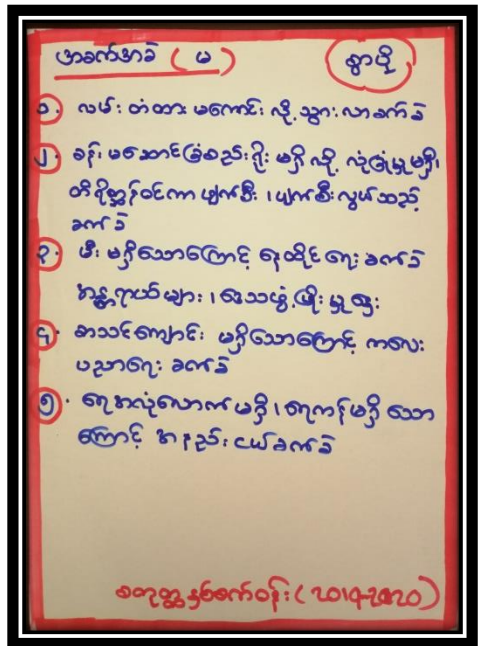 အခက်အခဲ ( မ ) ရွာပို
၁. လမ်းတံတား မကောင်းလို့ သွားလာခက်ခဲ
၂. ခန်းမဆောင်ခြံစည်းရိုး မရှိလို့ လုံခြုံမှုမရှိ၊
တိရိစ္ဆာန်ဝင်ကာ ဖျက်စီး ၊ ပျက်စီးလွယ်သည့်
ခက်ခဲ
၃. မီး မရှိသောကြောင့် နေထိုင်ရေး ခက်ခဲ
အန္တရာယ်များ ၊ ဒေသဖွံ့ဖြိုးမှုနှေး
၄. စာသင်ကျောင်း မရှိသောကြောင့် ကလေး
ပညာရေး ခက်ခဲ
၅. ရေအလုံလောက်မရှိ ၊ ရေကန်မရှိသော
ကြောင့် အနည်းငယ်ခက်ခဲ
စတုတ္ထနှစ်စက်ဝန်း ( ၂၀၁၉-၂၀၂၀ )